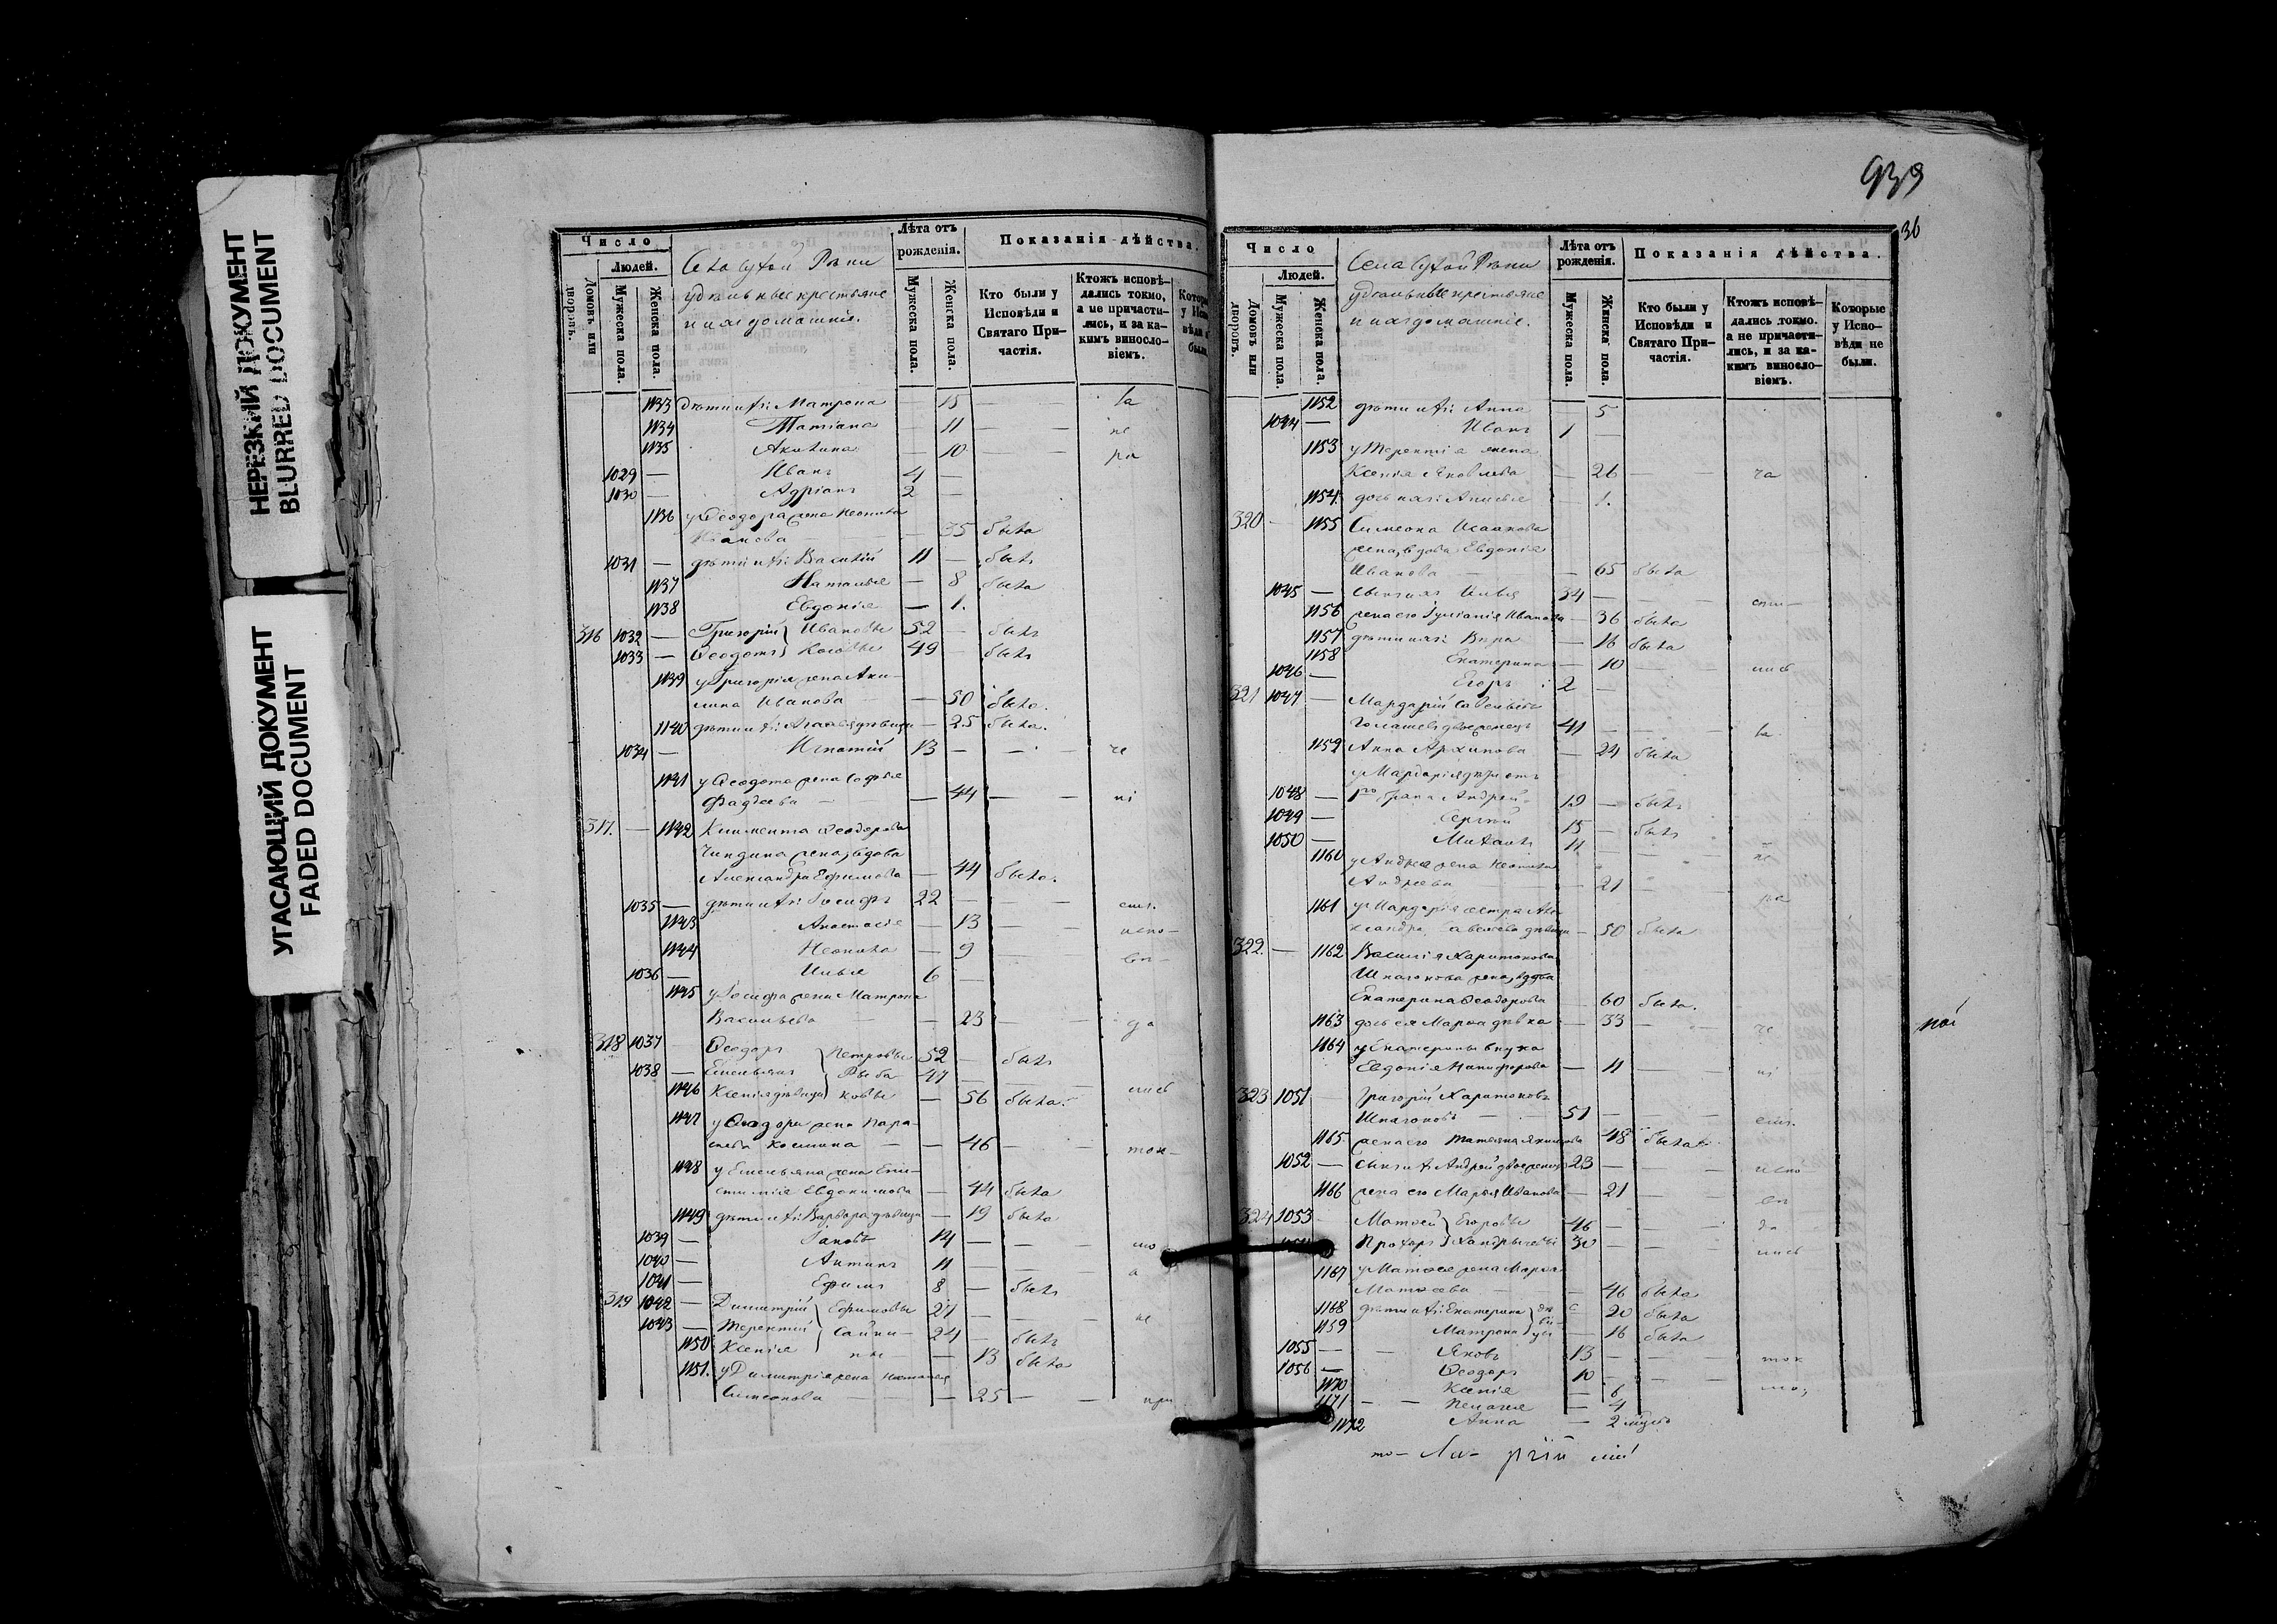 НЕРЕЗКИЙ ДОКУМЕНТ
BLURRED DOCUMENT
УГАСАЮЩИЙ ДОКУМЕНТ
FADED DOCUMENT
Число
Людей.
Домовъ или дворовъ.
Мужеска пола.
Женска пола.
Села Сухой Рѣки
удѣльные крестьяне
и ихъ домашніе.
Лѣта отъ рожденія.
Мужеска пола.
Женска пола.
Показанія дѣйства.
Кто были у Исповѣди и Святаго Причастія.
Ктожъ исповѣдались токмо, а не причастились, и за какимъ винословіемъ.
1133 дѣти ихъ: Матрона — 15 — —
1134 Татіана — 11 — — не
1135 Акилина — 10 — — ра
1029 — Иванъ 4 —
1030 — Адріанъ 2 —
1136 у Ѳеодора жена Неонила
35 была
1031 — дѣти ихъ: Василій 11 — былъ
1137 Наталья — 8 была
1138 Евдокія — 1.
316 1032 — Григорій } Ивановы 52 — былъ
1033 — Ѳеодотъ } 49 — былъ
1139 у Григорія жена Аки-
лина Иванова — 50 была.
1140 дѣти ихъ: Агаѳья дѣвица — 25 была.
1034 — Игнатій 13 — — че
1141 у Ѳеодота жена Софья
Фадѣева — — 44 — — ні
317. — 1142 Климента Ѳеодорова
Чиндина жена, вдова
Александра Ефимова — 44 была.
1035 — дѣти ихъ: Іосифъ 22 — —
1143 Анастасія — 13 — — испо-
1144 Неонила — 9 —
1036 — Илья 6 —
1145 у Іосифа жена Матрона
Васильева — — 23 — — да
318 1037 Ѳеодоръ } Петровы 52 — былъ
1038 — Емельянъ } Рыба 47 — —
1146 Ксенія дѣвица } ковы — 56 была. лись
1147 у Ѳеодора жена Пара-
скева Косьмина — — 46 — — ток-
1148 у Емельяна жена Епи-
стимія Евдокимова — 44 была
1149 дѣти ихъ: Варвара дѣвица — 19 была
1039 — Іаковъ 14 — — мо
1040 — Антипъ 11 — — а
1041 — Ефимъ 8 — былъ
319 1042 — Димитрій } Ефимовы 27 — — не
1043 — Терентій } Сайки- 24 — былъ
1150 Ксенія } ны — — 13 была
1151. у Димитрія жена Наталья
Симеонова — — 25 — — при
939
36
Число
Людей.
Домовъ или дворовъ.
Мужеска пола.
Женска пола.
Села Сухой Рѣки
удѣльные крестьяне
и ихъ домашніе.
Лѣта отъ рожденія.
Мужеска пола.
Женска пола.
Показанія дѣйства.
Кто были у Исповѣди и Святаго Причастія.
Ктожъ исповѣдались токмо. а не причастились, и за какимъ винословіемъ.
Которые у Исповѣди не были.
1152 дѣти ихъ: Анна — 5
1044 — Иванъ 1 —
1153 у Терентія жена
Ксенія Яковлева — 26 — — ча
1154. дочь ихъ: Анисья — 1.
320 — 1155 Симеона Исаакова
жена, вдова Евдокія
Иванова — — 65 была
1045 — сынъ ихъ Илья 34 — —
1156 жена его Іуліанія Иванова — 36 была
1157 дѣти ихъ: Вѣра — 16 была
1158 Екатерина — 10 — — лись
1046 — Егоръ 2 —
321 1047 — Мардарій Савельевъ
двоеженецъ 41 — —
1159 Анна Архипова — 24 была
у Мардарія дѣти отъ
1048 — 1го брака Андрей 19 — былъ
1049 — Сергѣй 15 — былъ
1050 — Михаилъ 11 — — не
1160 у Андрея жена Неонила
Андреева — 21 — — ра
1161 у Мардарія сестра Але-
ксандра Савельева дѣвица — 50 была
322. — 1162 Василія Харитонова
Шпагонова жена, вдова
Екатерина Ѳеодорова 60 была.
1163 дочь ея Марѳа дѣвка — 33 — — че
1164 у Екатерины внука
Евдокія Никифорова — 11 — — ні
323 1051 Григорій Харитоновъ
Шпагоновъ — 51 — —
1165 жена его Татьяна Якимова 48 была
1052 — сынъ ихъ Андрей двоеженецъ 23 — — испо
1166 жена его Марья Иванова — 21 — —
324 1053 Матѳей } Егоровы 46 — — да
Прохоръ } 30 — — лись
1167 у Матѳея жена Марѳа
Матѳеева — — 46 была
1168 дѣти ихъ: Екатерина } дѣ- 20 была
1159 Матрона } — 16 была
1055 — Яковъ 13 — — ток
1056 — Ѳеодоръ 10 — — мо,
1170 Ксенія — 6
1171 — — Пелагія — 4
1172 Анна — 2